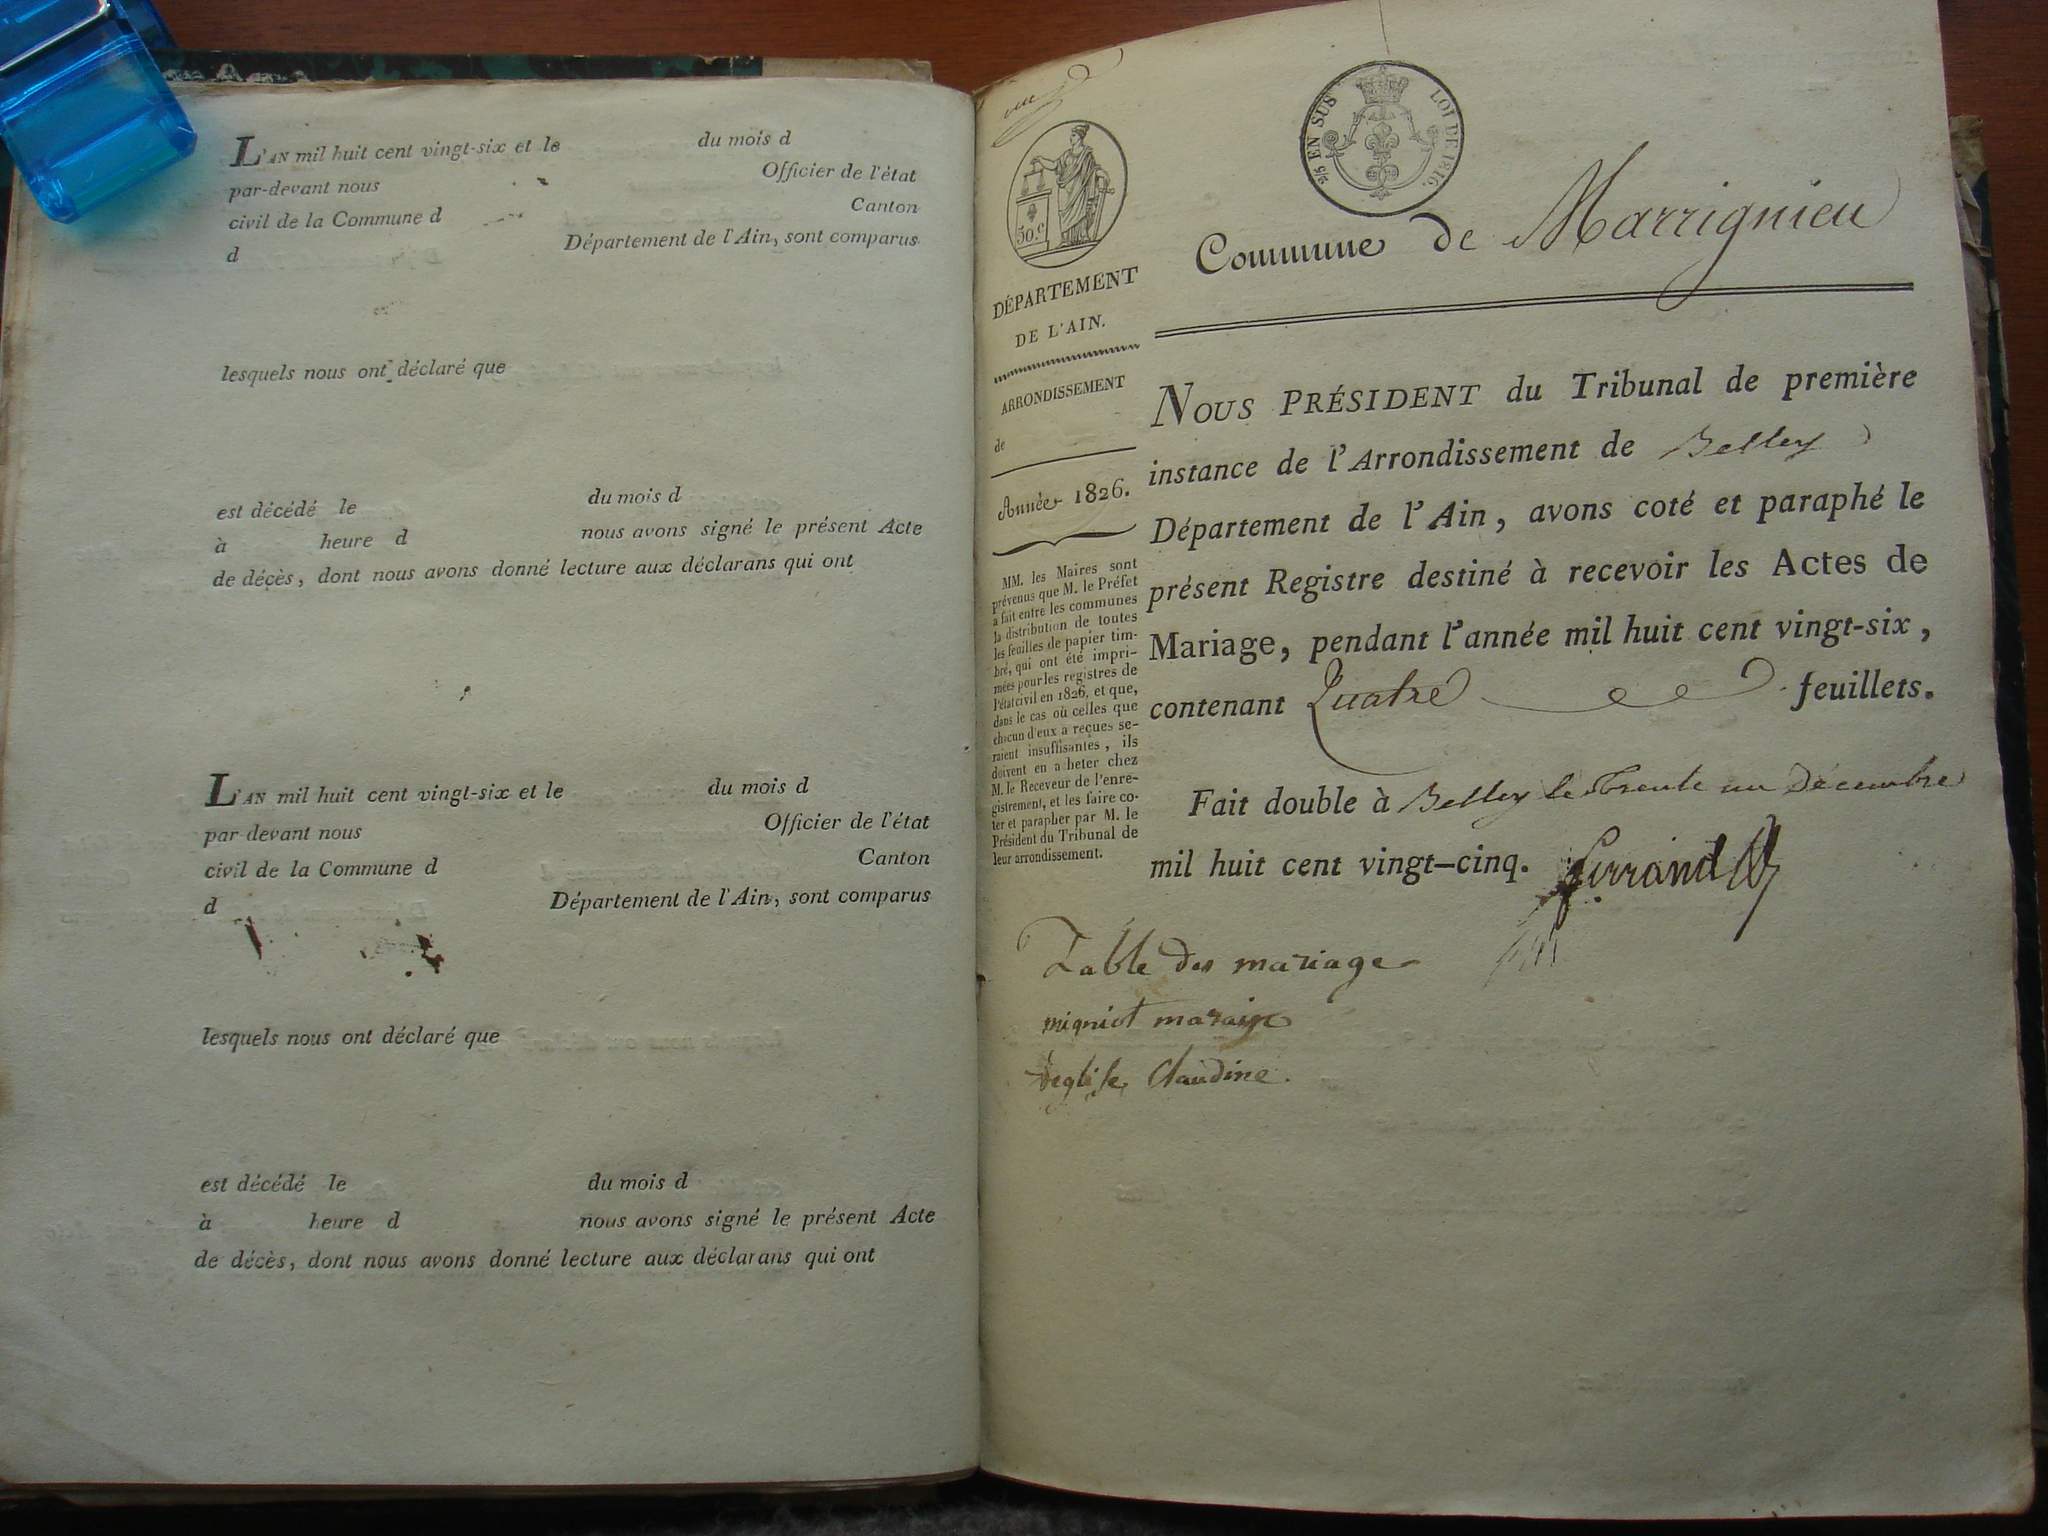 L'AN mil huit cent vingt-six et le du mois d
par-devant nous Officier de l'état
civil de la Commune d Canton
d Département de l'Ain, sont comparus
lesquels nous ont déclaré que
est décédé le du mois d
à heure d nous avons signé le présent Acte
de décès, dont nous avons donné lecture aux déclarans qui ont
L'AN mil huit cent vingt-six et le du mois d
par devant nous Officier de l'état
civil de la Commune d Canton
d Département de l'Ain, sont comparus
lesquels nous ont déclaré que
est décédé le du mois d
à heure d nous avons signé le présent Acte
de décès, dont nous avons donné lecture aux déclarans qui ont
EN SUS LOI DE 1816.
50.c
DÉPARTEMENT
DE L'AIN.
ARRONDISSEMENT
de
Année 1826.
MM. les Maires sont
prévenus que M. le Préfet
a fait entre les communes
la distribution de toutes
les feuilles de papier tim-
bré, qui ont été impri-
mées pour les registres de
l'état civil en 1826, et que,
dans le cas où celles que
chacun d'eux a reçues se-
raient insuffisantes, ils
doivent en a heter chez
M. le Receveur de l'enre-
gistrement, et les faire co-
ter et parapher par M. le
Président du Tribunal de
leur arrondissement.
Commune de Marrignieu
NOUS PRÉSIDENT du Tribunal de première
instance de l'Arrondissement de Belley
Département de l'Ain, avons coté et paraphé le
présent Registre destiné à recevoir les Actes de
Mariage, pendant l'année mil huit cent vingt-six,
contenant Quatre feuillets.
Fait double à Belley le trente un décembre
mil huit cent vingt-cinq.
Table des mariage
migniot
Claudine.